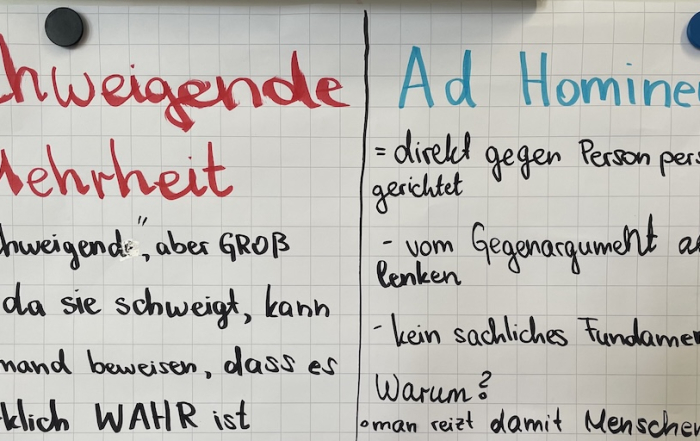 hweigende
Mehrheit
hweigende", aber GROß
da sie schweigt, kann
mand beweisen, dass es
klich WAHR ist
Ad Homine
= direkt gegen Person pers
gerichtet
- vom Gegenargument a
lenken
- kein sachliches Fundame
Warum?
• man reizt damit Menschen